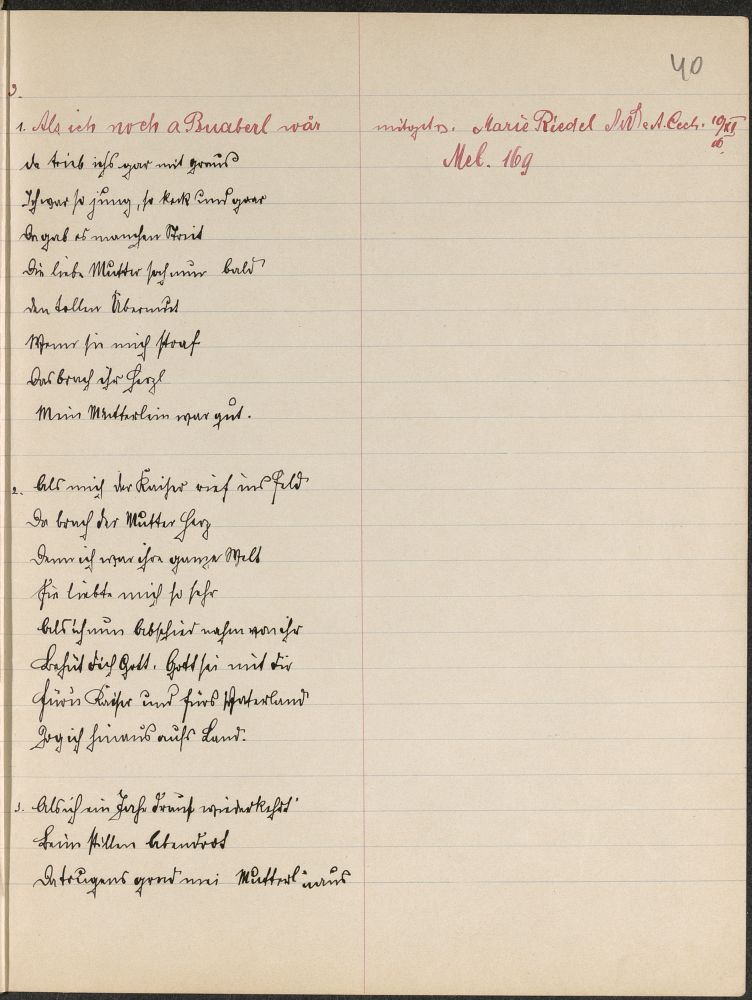 40
3.
1. Als ich noch a Buaberl wår
mitget. v. Marie Riedel
Mel. 169
da trieb ichs gar mit graus
Ich war so jung, so keck und
Da gab es manchen Streit
Die liebe Mutter sah nun bald
den tollen Übermut
Wenn sie mich straf
Das brach ihr Herzl
Mein Mütterlein war gut.
2. Als mich der Kaiser rief ins Feld
Da brach der Mutter Herz
Denn ich war ihre ganze Welt
Sie liebte mich so sehr
Als ich nun Abschied nahm von ihr
Behüt dich Gott. Gott sei mit dir
Für'n Kaiser und fürs Vaterland
Zog ich hinaus aufs Land.
3. Als ich ein Jahr drauf wiederkehrt'
Beim stillen Abendrot
Da trugens grad mei Mutterl 'naus